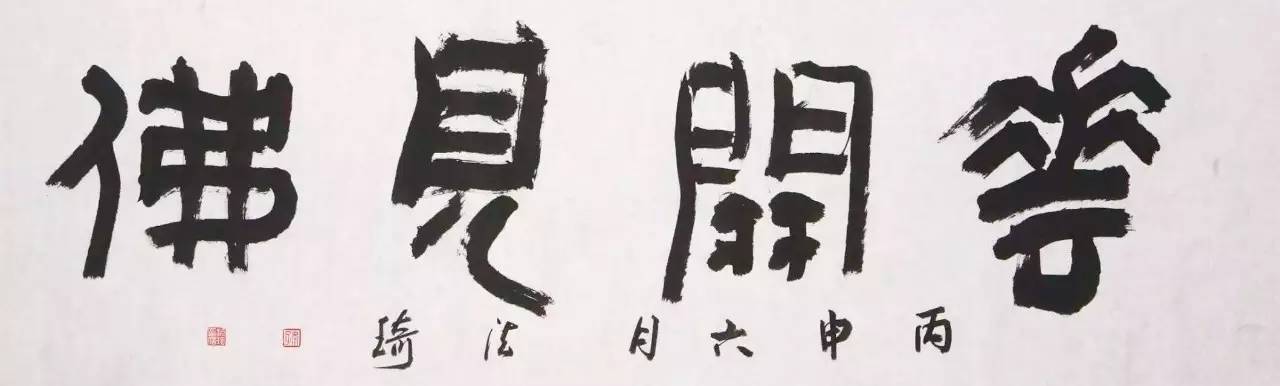 華開見佛
丙申六月法琦